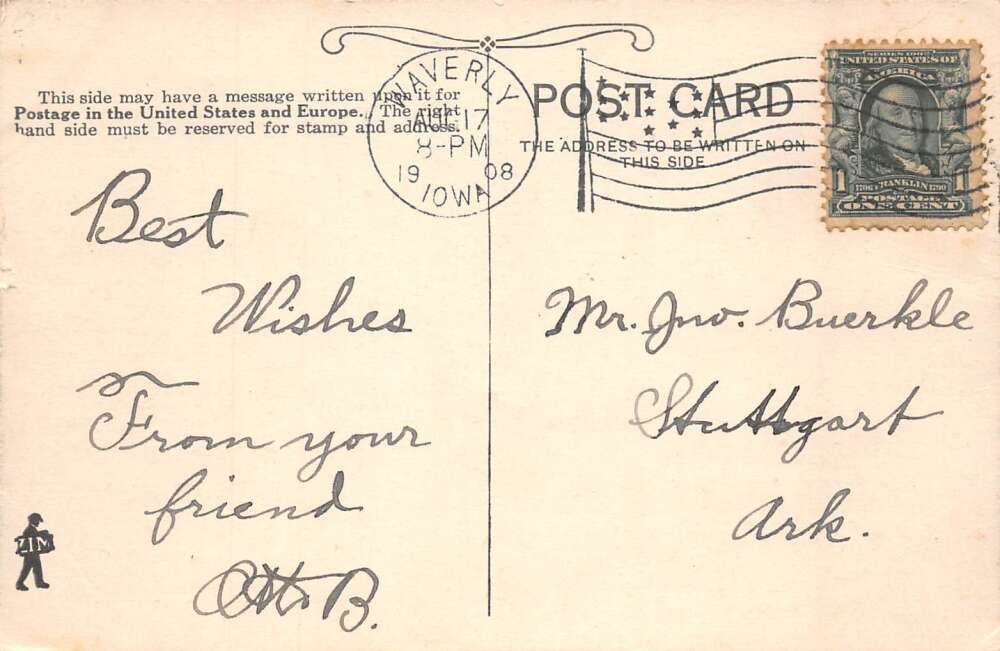 This side may have a message written upon it for
Postage in the United States and Europe. The right
hand side must be reserved for stamp and address.
WAVERLY
17
8-PM
1908
IOWA
POST CARD
THE ADDRESS TO BE WRITTEN ON
THIS SIDE
SERIES 1902
UNITED STATES OF
AMERICA
1706 FRANKLIN 1790
1 1
POSTAGE
ONE CENT
Best
Wishes
From your
friend
Otto B.
ZIM
Mr. Jno. Buerkle
Stuttgart
Ark.